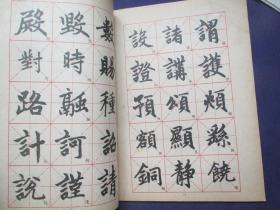 謂護頰饒
諸講頌顯靜
設證預額銅
數賜種詔請
毀時融訶謹
殿對路計説